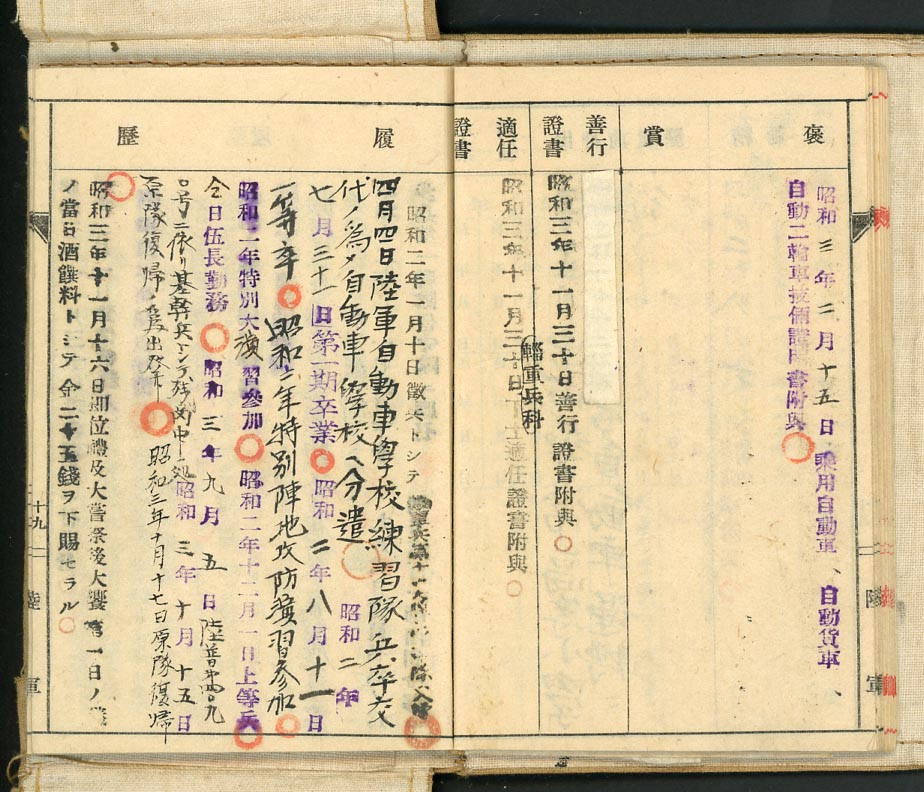 褒賞
昭和三年二月十五日乗用自動車、自動貨車、
自動二輪車技倆證明書附與
善行證書
昭和三年十一月三十日善行證書附與
適任證書
輜重兵科
昭和三年十一月三十日下士適任證書附與
履歷
昭和二年一月十日徴兵トシテ
四月四日陸軍自動車學校練習隊兵卒交
代ノ爲メ自動車學校ヘ分遣 昭和二年
七月三十一日第一期卒業 昭和二年八月十一日
一等卒 昭和二年特別陣地攻防演習参加
昭和二年特別大演習参加 昭和二年十二月一日上等兵
仝日伍長勤務 昭和三年九月五日陸普第四〇九
〇号ニ依リ基幹兵トシテ残 昭和三年十月十五日
原隊復帰ノ爲出發 昭和三年十月十七日原隊復帰
昭和三年十一月十六日即位禮及大嘗祭後大饗第一日ノ
ノ當日酒饌料トシテ金二十五錢ヲ下賜セラル
十九
陸軍
陸軍